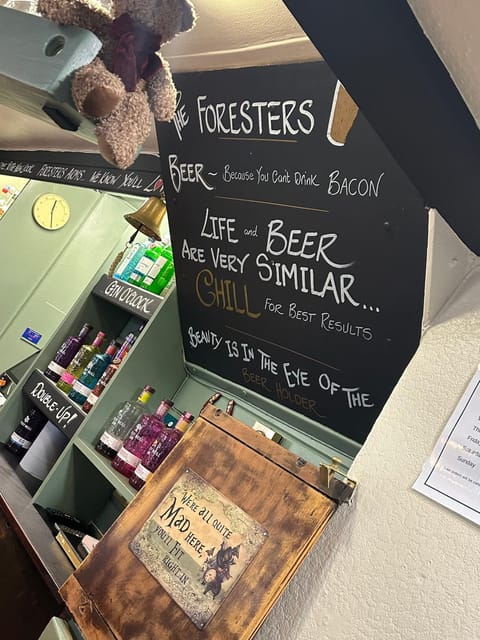 THE FORESTERS
BEER~ BECAUSE YOU CAN'T DRINK BACON
LIFE and BEER
ARE VERY SIMILAR...
CHILL FOR BEST RESULTS
BEAUTY IS IN THE EYE OF THE
BEER HOLDER
FORESTERS ARMS WE KNOW YOU'LL
GIN O'CLOCK
DOUBLE UP!
WE'RE ALL QUITE
MAD HERE,
YOU'LL FIT
RIGHT IN
Friday
Sunday